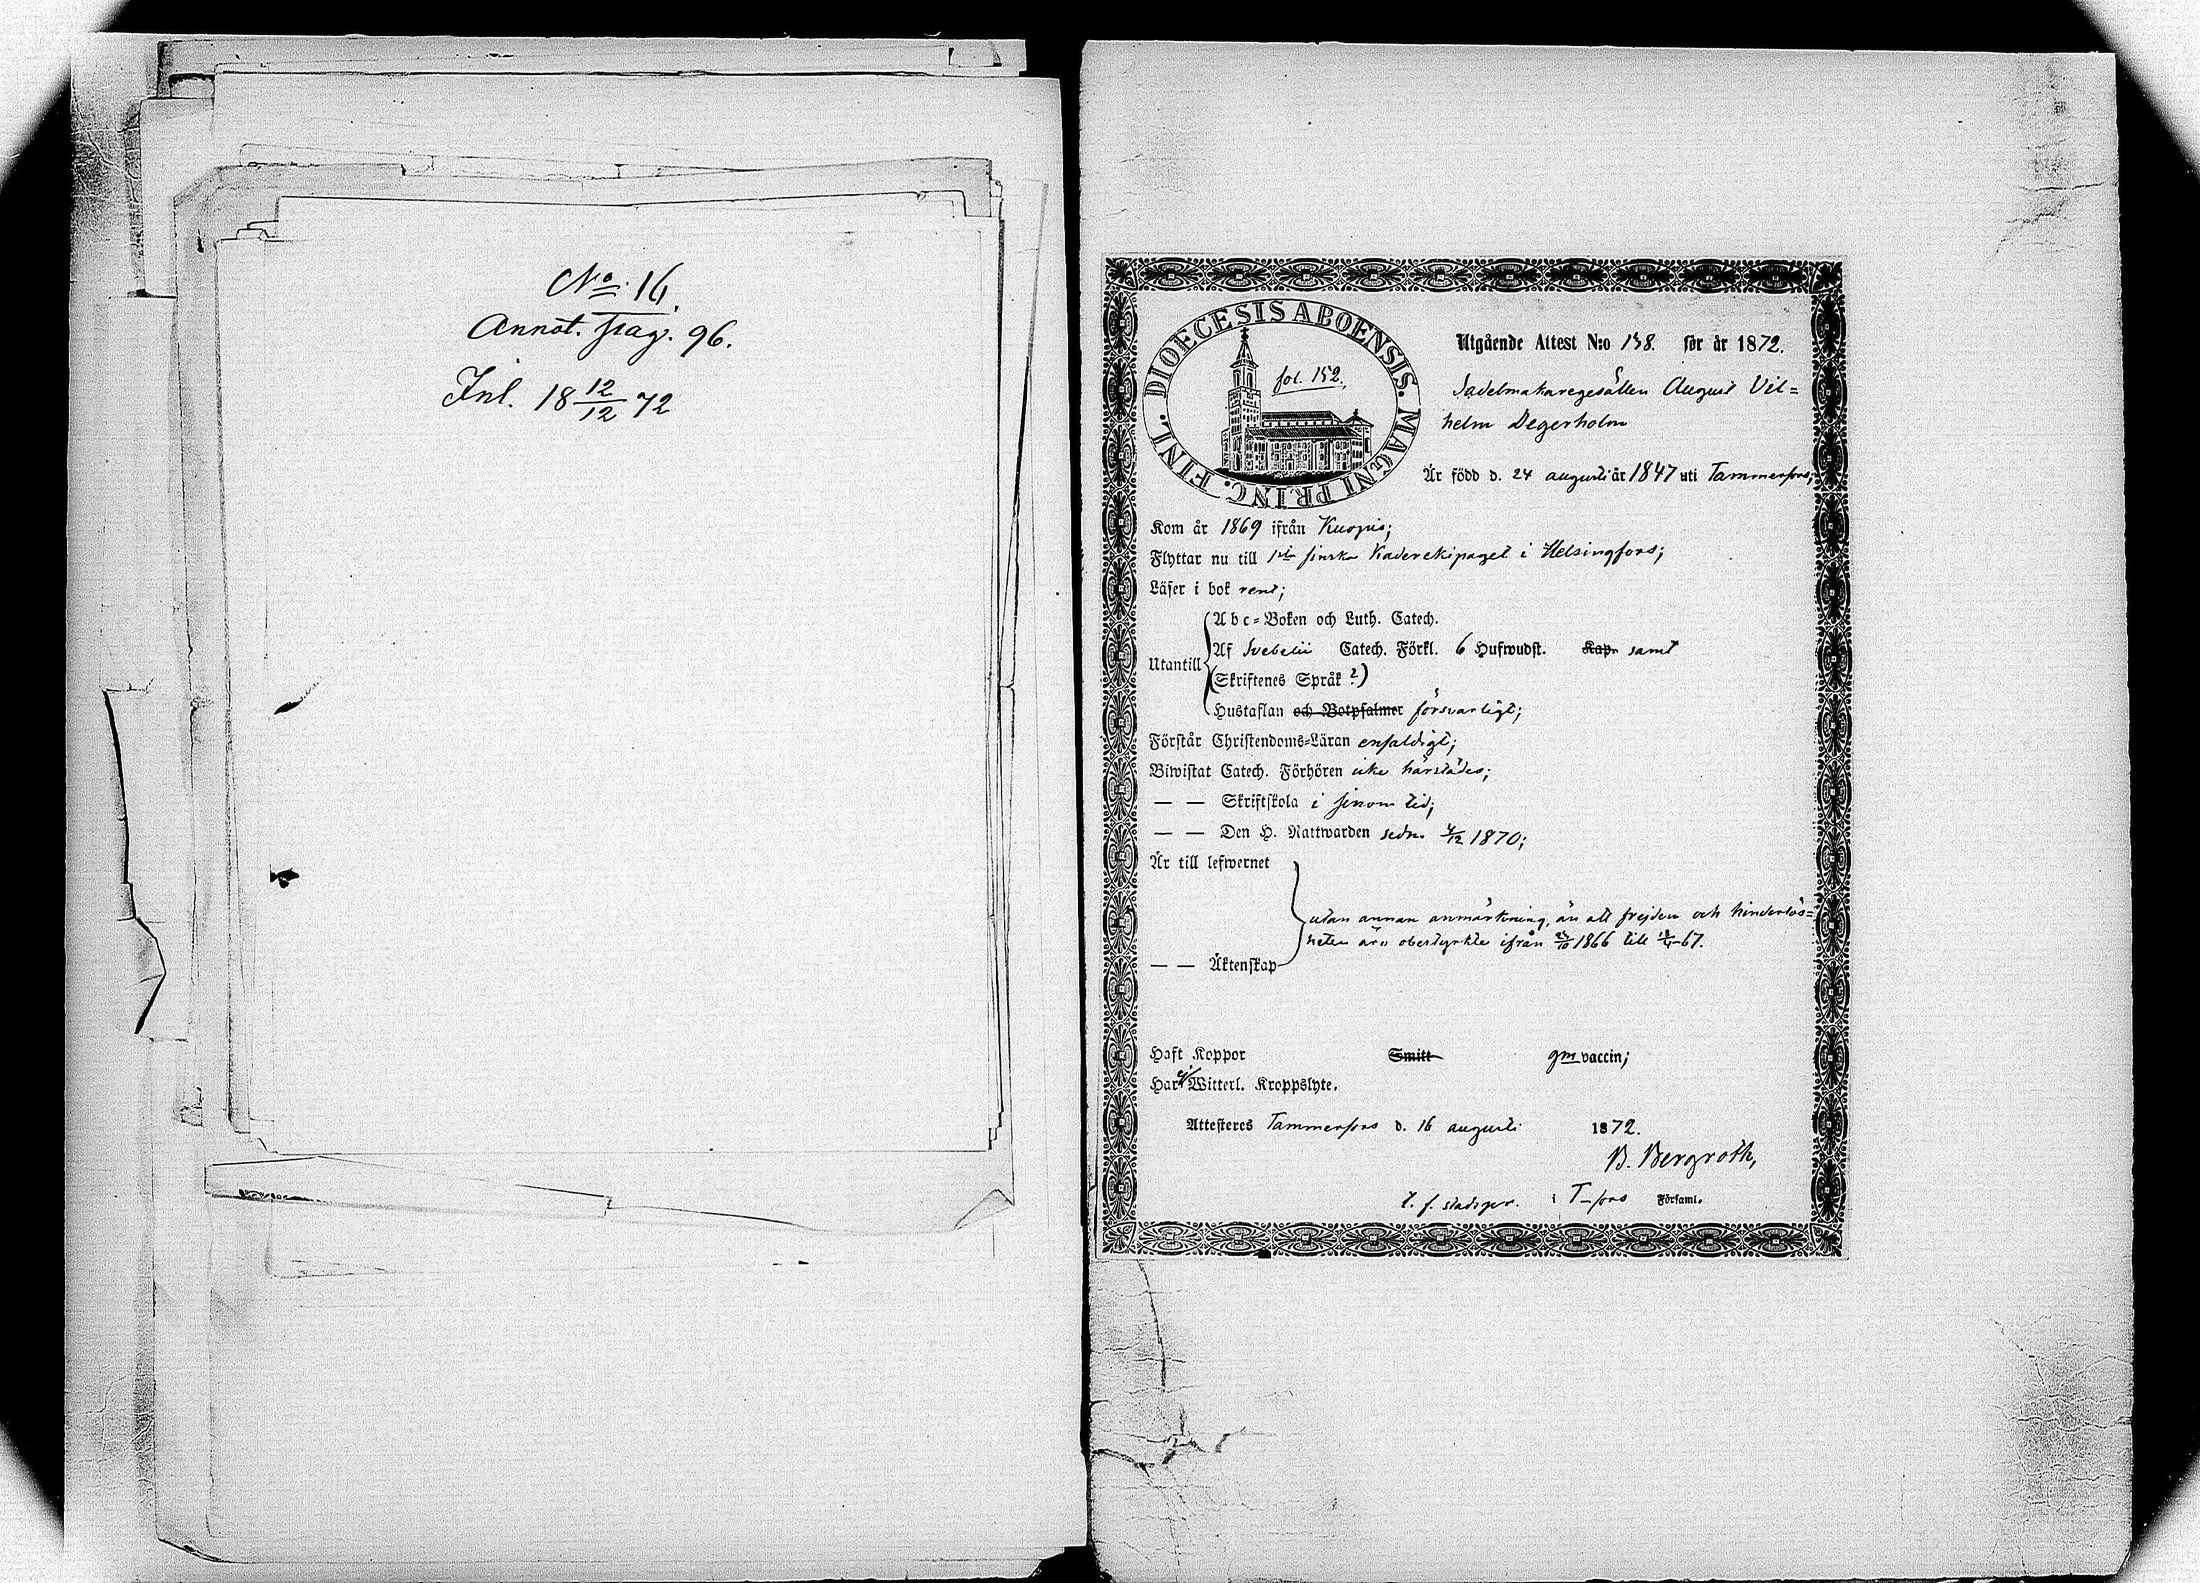 No. 16.
Annot. pag. 96.
Inl. 18 12/12 72
DIOECESIS ABOENSIS. MAGNI PRINC. FINL.
fol. 152.
Utgående Attest N:o 158. för år 1872.
Sadelmakaregesällen August Vil=
helm Degerholm
Är född d. 24 augusti år 1847 uti Tammerfors;
Kom år 1869 ifrån Kuopio;
Flyttar nu till 1sta finska Kaderekipaget i Helsingfors;
Läser i bok rent;
Utantill
Abc=Boken och Luth. Catech.
Af Svebelii Catech. Förkl. 6 Hufwudst. Kap. samt
(Skriftenes Språk ?)
Hustaflan och Botpsalmer försvarligt;
Förstår Christendoms=Läran enfaldigt;
Biwistat Catech. Förhören icke härstädes;
— — Skriftskola i sinom tid;
— — Den H. Nattwarden sedn. 4/12 1870;
Är till lefwernet
utan annan anmärkning, än att frejden och hinderlös=
heten äro obestyrkte ifrån 1866 till 67.
— — Äktenskap
Haft Koppor Smitt gm vaccin;
Har ej Witterl. Kroppslyte.
Attesteres Tammerfors d. 16 augusti 1872.
B. Bergroth,
t. f. stadsper. i T-fors Församl.